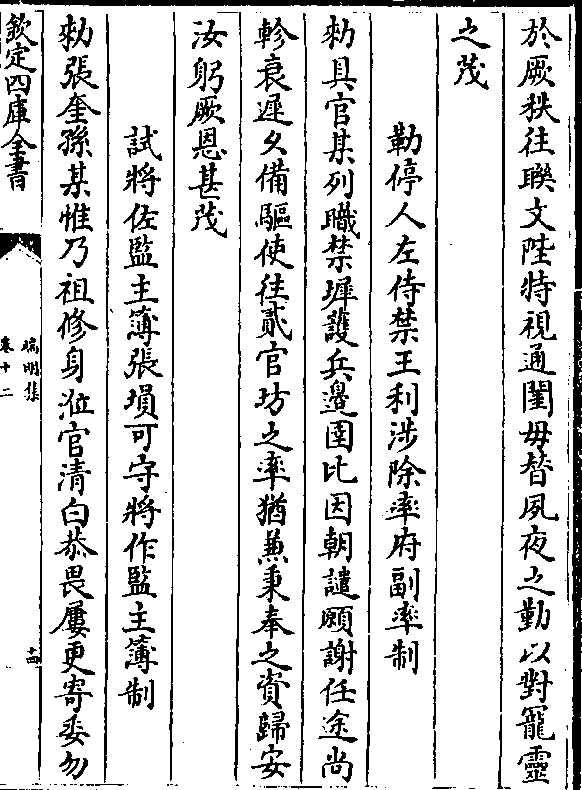 於厥秩往聮文陛特視通閨毋替夙夜之勤以對寵靈
之茂
勒停人左侍禁王利涉除率府副率制
勑具官某列職禁墀護兵邊圉比因朝譴願謝任途尚
軫衰遲攵備驅使往貳官坊之率猶兼秉奉之資歸安
汝躬厥恩甚茂
試將佐監主簿張塤可守將作監主簿制
勑張奎孫某惟乃祖修身涖官清白恭畏屢更寄委勿
欽定四庫全書
端明集
卷十二
十四